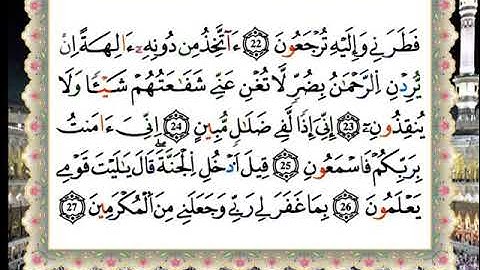 فَطَرَنِے وَإِلَيْهِ تُرْجَعُونَ 22 ءَآتَّخِذُ مِن دُونِهِۦٓ ءَالِهَةً اِنْ
يُّرِدْنِ اِ۬لرَّحْمَٰنُ بِضُرّٖ لَّا تُغْنِ عَنِّے شَفَٰعَتُهُمْ شَيْـٔٗا وَلَا
يُنقِذُونِۦٓ 23 إِنِّيَ إِذاٗ لَّفِے ضَلَٰلٖ مُّبِينٍ 24 اِنِّيَ ءَامَنتُ
بِرَبِّكُمْ فَاسْمَعُونِ 25 قِيلَ اَ۟دْخُلِ اِ۬لْجَنَّةَۖ قَالَ يَٰلَيْتَ قَوْمِے
يَعْلَمُونَ 26 بِمَا غَفَرَ لِے رَبِّے وَجَعَلَنِے مِنَ اَ۬لْمُكْرَمِينَ 27